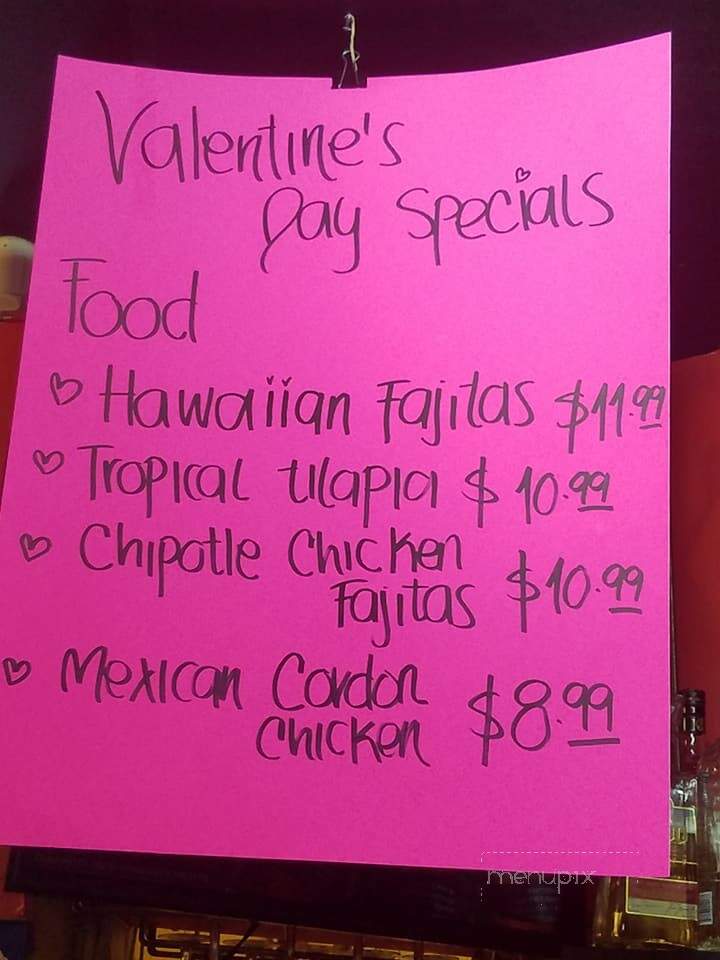 Valentine's
Day Specials
Food
Hawaiian Fajitas $11.99
Tropical tilapia $10.99
Chipotle Chicken
Fajitas $10.99
Mexican Cordon
Chicken $8.99
menupix